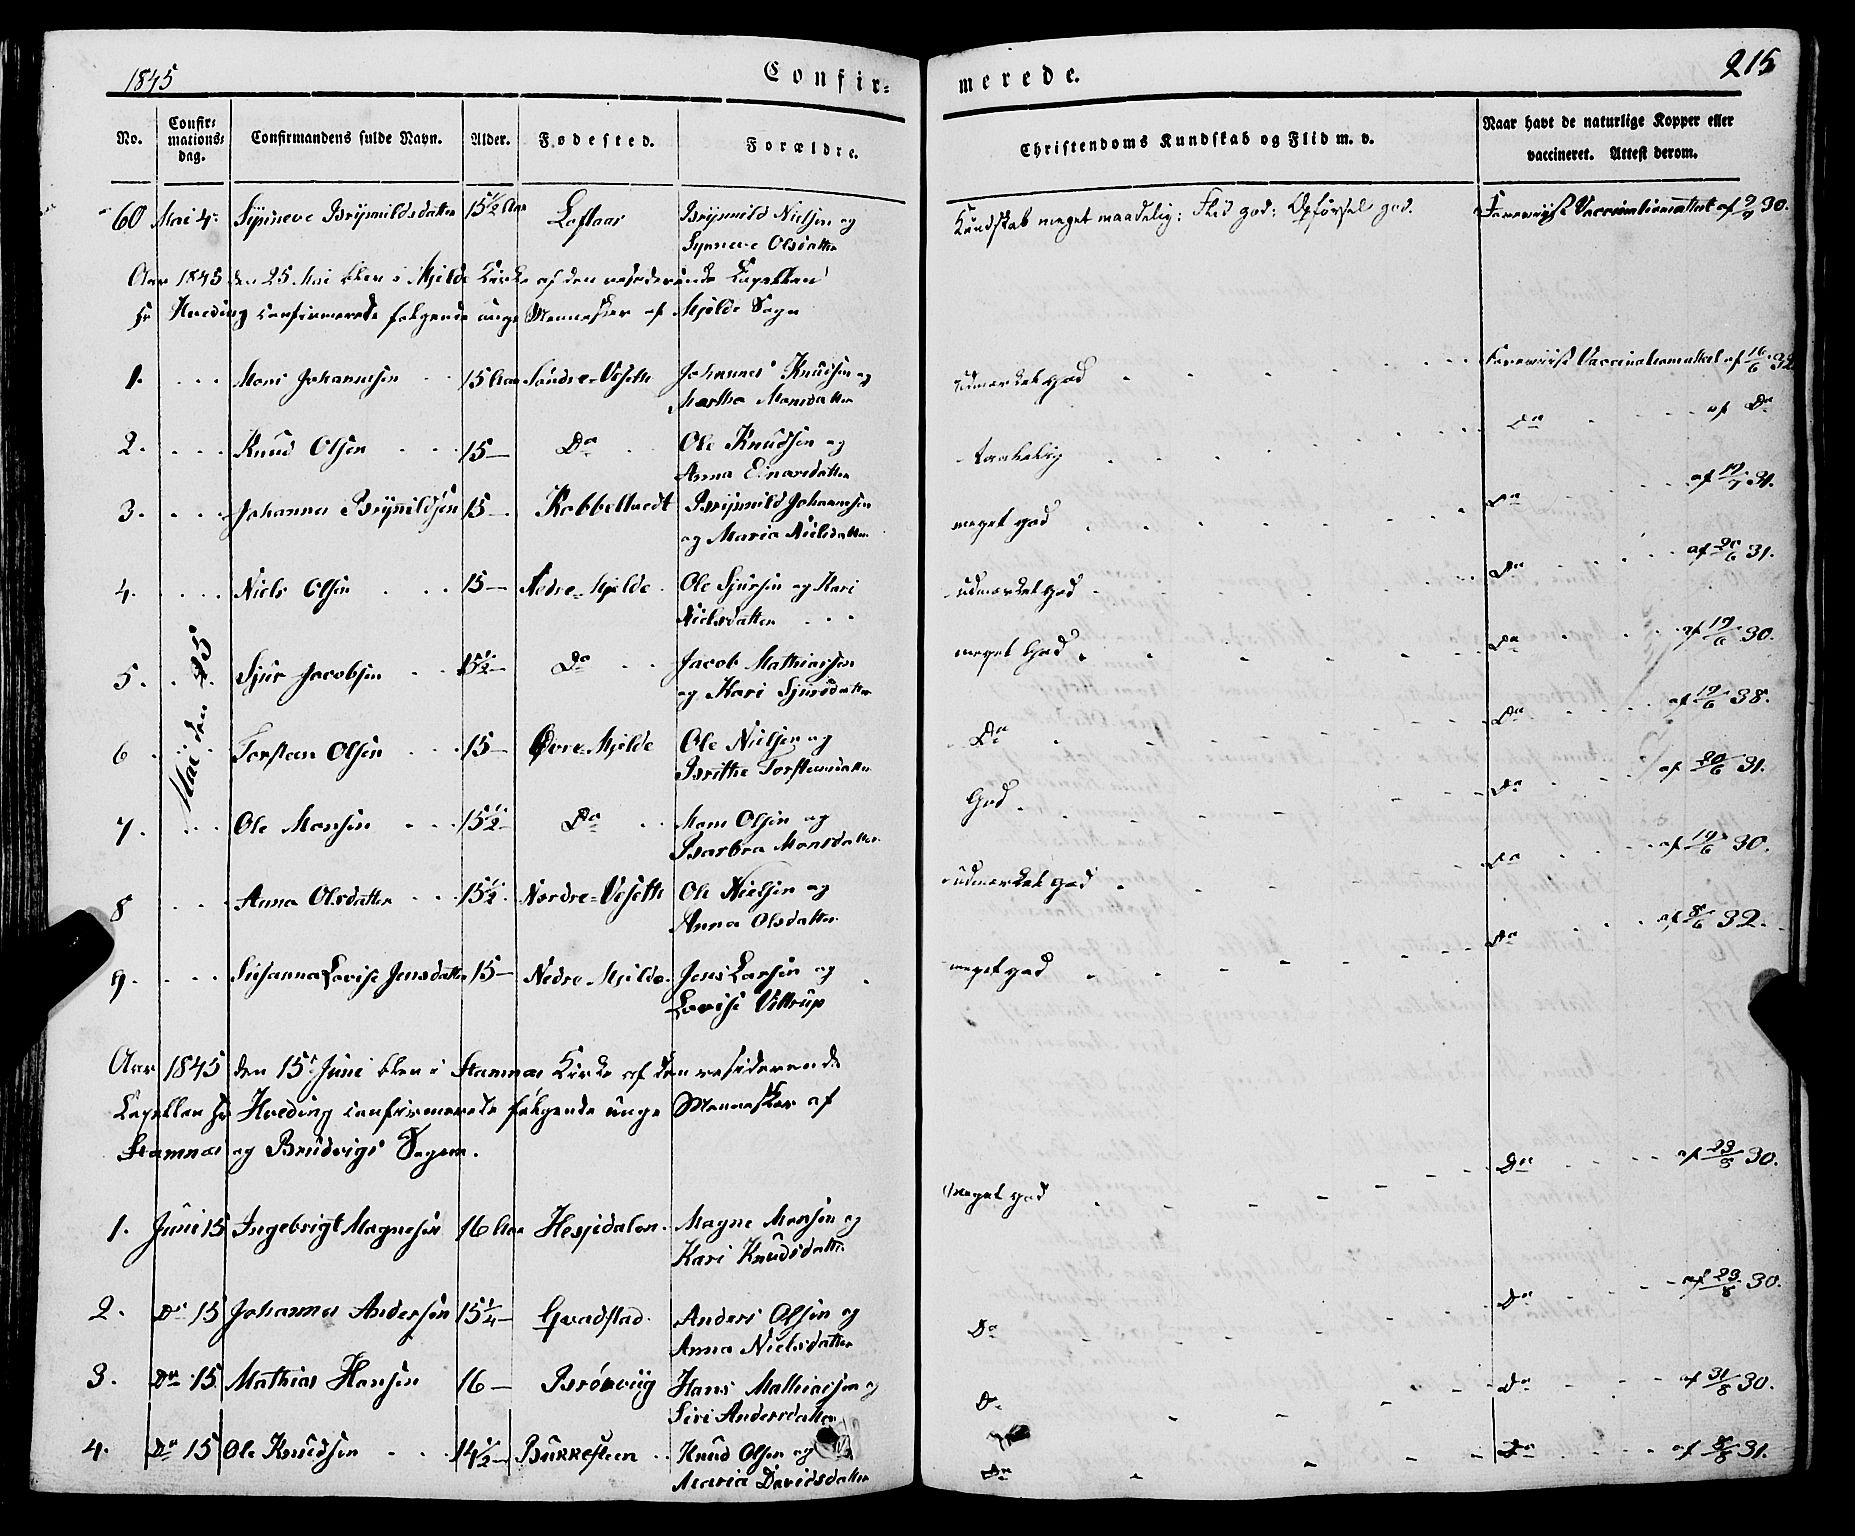 1845 Confir= merede. 215
No. Confir=mations=dag. Confirmandens fulde Navn. Alder. Fødested. Forældre. Christendoms Kundskab og Flid m. v. Naar havt de naturlige Kopper eller vaccineret. Attest derom.
60 Mai 4. Synneve Brynnildsdatter 15 1/2 Aar Loftaas Brynnild Nielsen og Kundskab meget maadelig: Flid god: Opførsel god. Foreviist Vaccinationsattest af 30.
Synneve Olsdatter
Aar 1845 den 25 Mai blev i Mjelde Kirke af den residerende Capellan
Hr Hveding confirmerede følgende unge Mennesker af Mjelde Sogn
1. Mons Johannesen 15 Aar Søndre-Veseth Johannes Knudsen og udmærket god Foreviist Vaccinationsattest af 16/6 32
Martha Monsdatter
2. Knud Olsen 15 Do Ole Knudsen og taalelig Do af Do
Anna Einarsdatter
3. Johannes Brynildsen 15 Kobbeltvedt Brynnild Johannesen meget god Do af 31.
og Maria Nielsdatter
4. Niels Olsen 15 Nedre-Mjelde Ole Sjursen og Kari udmærket god Do af 20/6 31.
Nielsdatter
Mai den 25
5. Sjur Jacobsen 15 1/2 Do Jacob Mathiasen meget God Do af 19/6 30.
og Kari Sjursdatter
6 Torsteen Olsen 15 Øvre-Mjelde Ole Nielsen og Do Do af 19/6 38.
Brithe Torsteensdatter
7. Ole Monsen 15 1/2 Do Mons Olsen og God Do af 20/6 31.
Barbra Monsdatter
8 Anna Olsdatter 15 1/2 Nordre-Veseth Ole Nielsen og udmærket god Do af 19/6 30.
Anna Olsdatter
9. Susanna Lovise Jensdatter 15 Nedre Mjelde Jens Larsen og meget god Do af 8/6 32.
Lovise Vittrup
Aar 1845 den 15de Juni blev i Stamnæs Kirke af den residerende
Capellan Hr Hveding confirmerede følgende unge Mennesker af
Stamnæs og Brudvigs Sogne.
1. Juni 15 Ingebrigt Magnesen 16 Aar Hesjedalen Magne Monsen og meget god Do af 23/8 30.
Kari Knudsdatter
2. Do 15 Johannes Andersen 15 1/4 Qvadstad Anders Olsen og Do Do af 23/8 30.
Anna Nielsdatter
3. Do 15 Mathias Hansen 16 Brørviig Hans Mathiasen og Do Do af 31/8 30.
Siri Andersdatter
4. Do 15 Ole Knudsen 14 1/2 Bukkesteen Knud Olsen og Do Do af 31.
Maria Davidsdatter